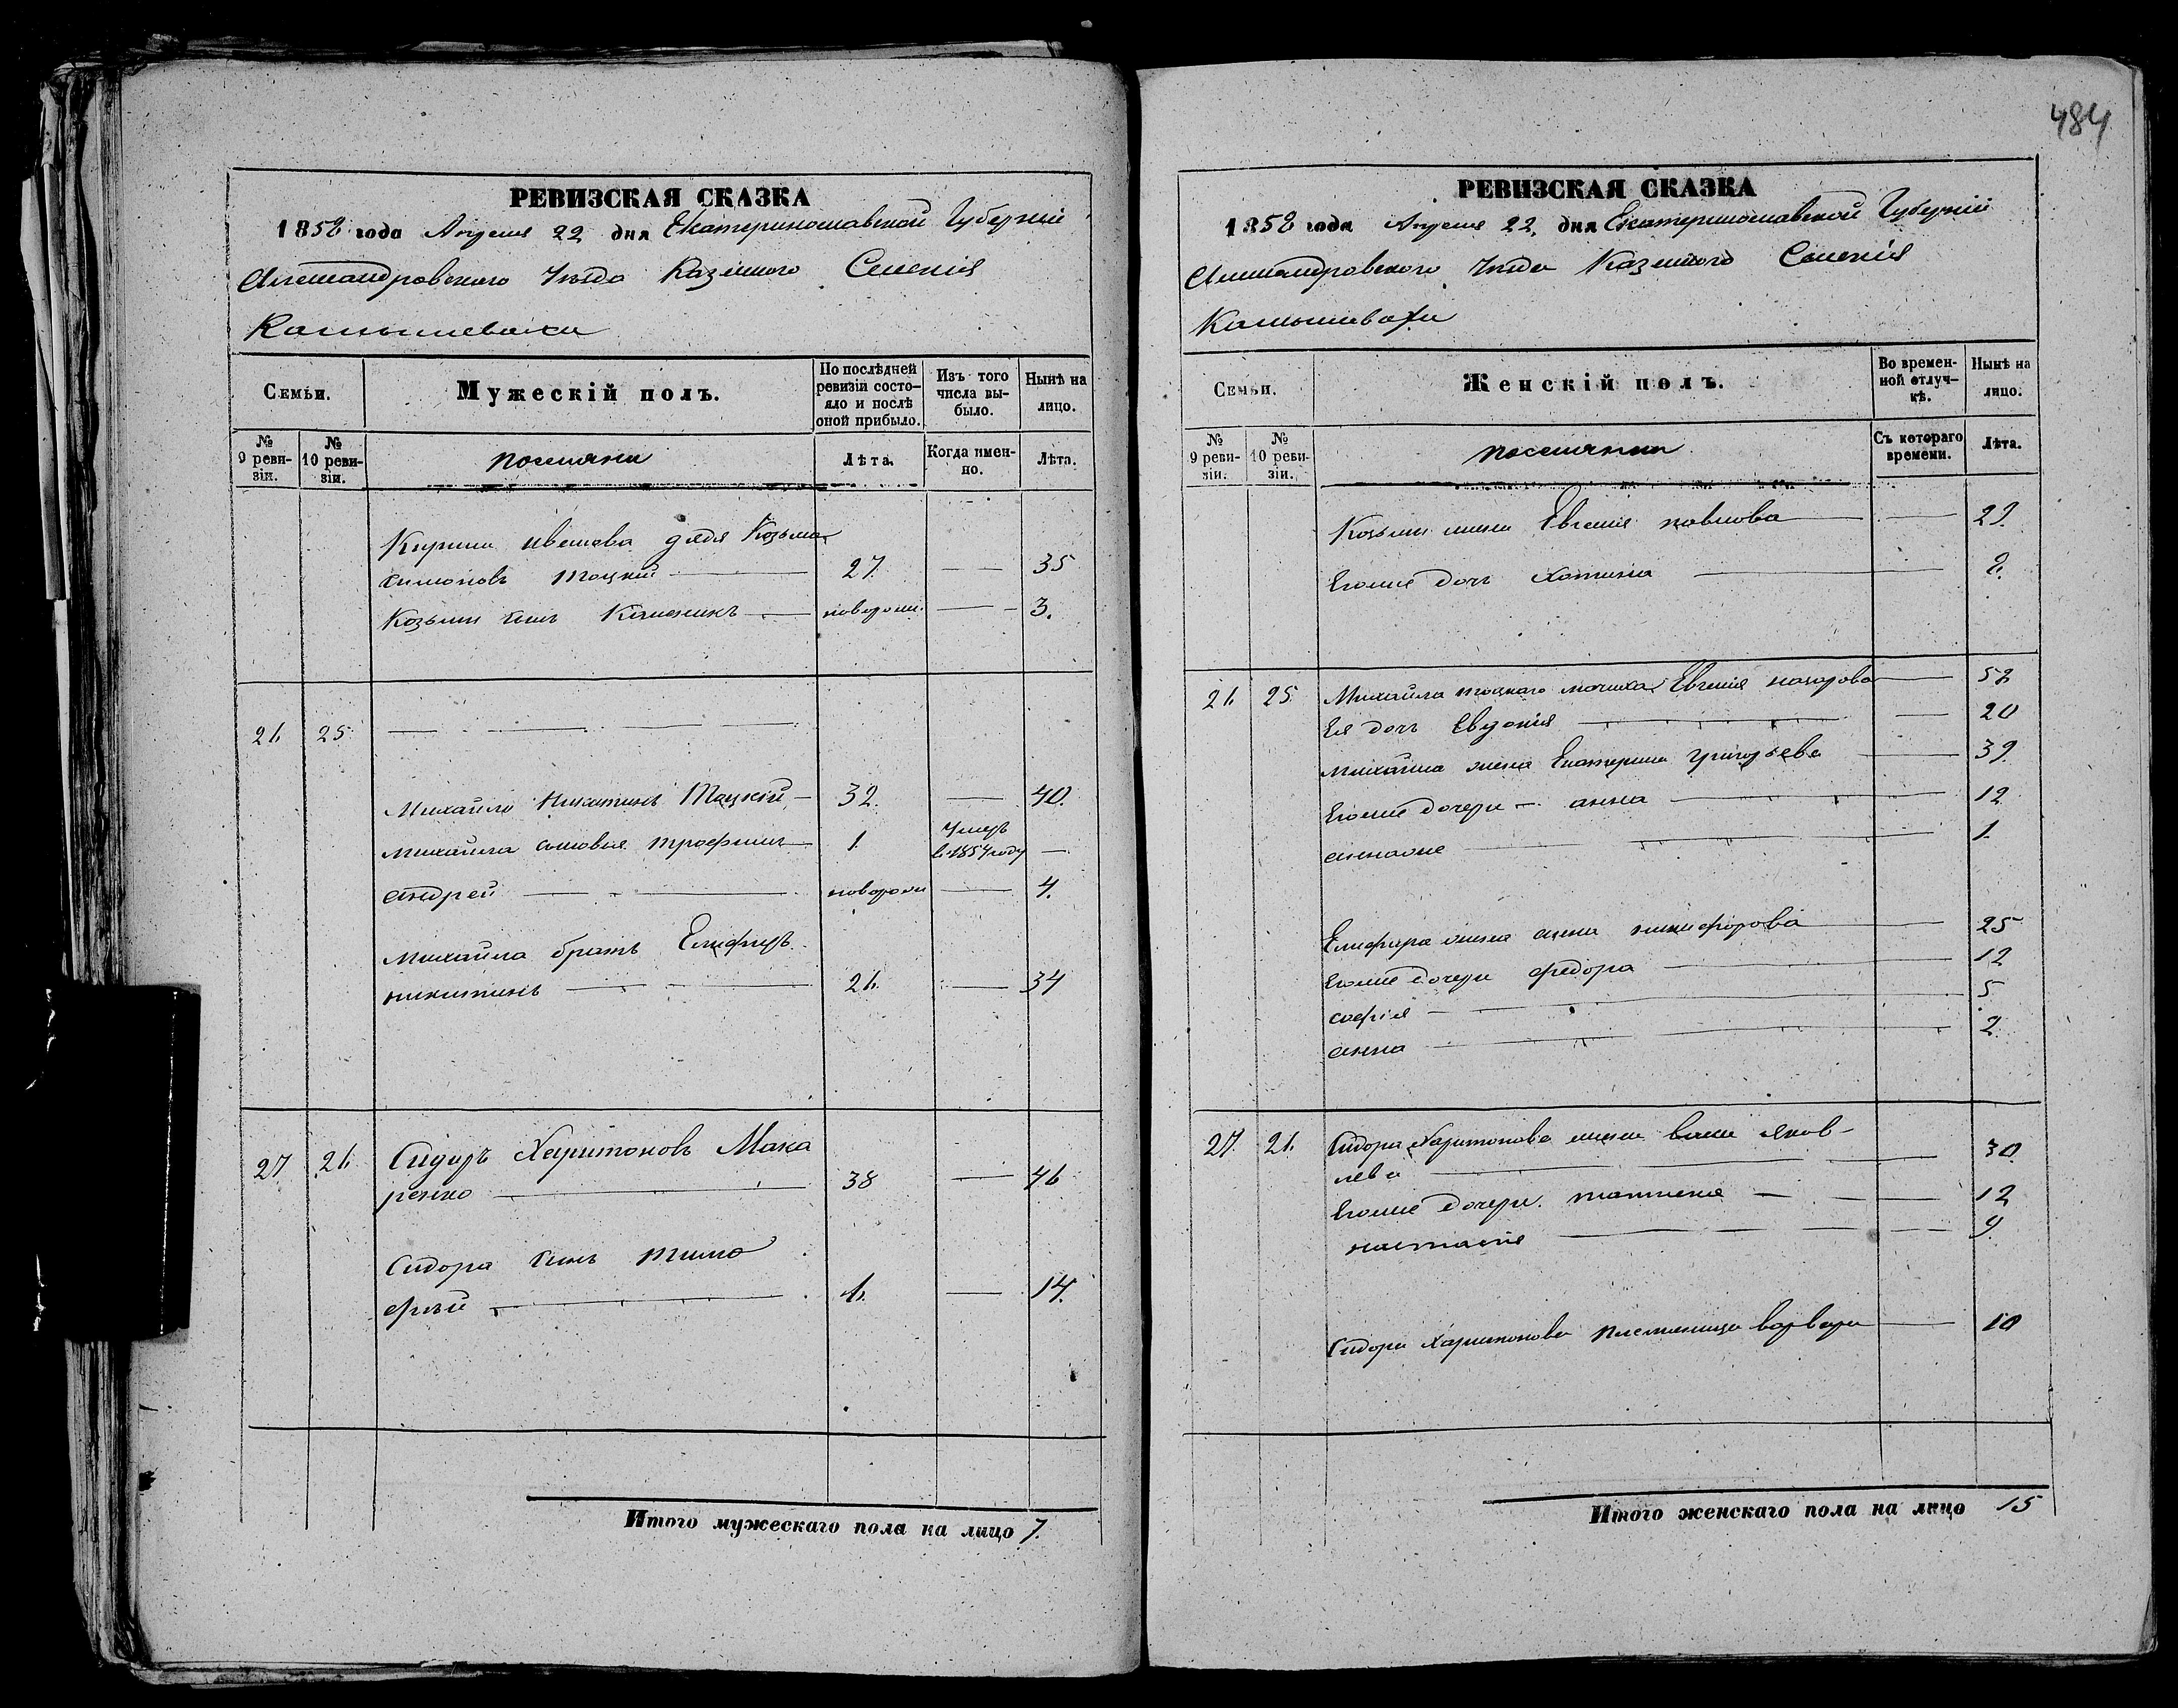 484
РЕВИЗСКАЯ СКАЗКА
1858 года Апреля 22 дня Екатеринославской Губерніи
Александровского Уезда Казенного Селенія
Камышевахи
Семьи.
Мужескій полъ.
По послѣдней ревизіи состояло и послѣ оной прибыло.
Изъ того числа выбыло.
Нынѣ на лицо.
№ 9 ревизіи.
№ 10 ревизіи.
поселяни
Лѣта.
Когда именно.
Лѣта.
дядя Козьма
Тоцкий — 27. — 35
Козьми сынъ — новорожд. — 3.
26 25
Михайло Никитинъ Тоцкій — 32. — 40.
Михайла сыновья Трофимъ — 1. Умеръ в 1854 году —
Андрей — новорожд — 4.
Михайла братъ Елифиръ
Никитинъ — 26. — 34
27 26 Сидоръ Харитоновъ Мака
ренко — 38 — 46
Сидора сынъ Тимо
фѣй — 6. — 14.
Итого мужескаго пола на лицо 7.
РЕВИЗСКАЯ СКАЗКА
1858 года Апреля 22. дня Екатеринославской Губерніи
Александровского Уезда Казенного Селенія
Камышевахи
Семьи.
Женскій полъ.
Во временной отлучкѣ.
Нынѣ на лицо.
№ 9 ревизіи.
№ 10 ревизіи.
поселянки
Съ котораго времени.
Лѣта.
Козьми жена Евгения Павлова — 29.
Егоже дочь — 2.
26 25 Михайла Тоцкаго мачиха Евгения Назарова — 52
Ея дочь Евдокия — 20
Михайла жена Екатерина Григорьева — 39
Егоже дочери — Анна — 12
— 1.
Елифира жена Анна Никифорова — 25
Егоже дочери Федора — 12
Софія — 5
Анна — 2
27. 26. Сидора Харитонова жена Яков-
лева — 30
Егоже дочери Татиена — 12
Настасия — 9.
Сидора Харитонова племяница Варвара — 10
Итого женскаго пола на лицо 15